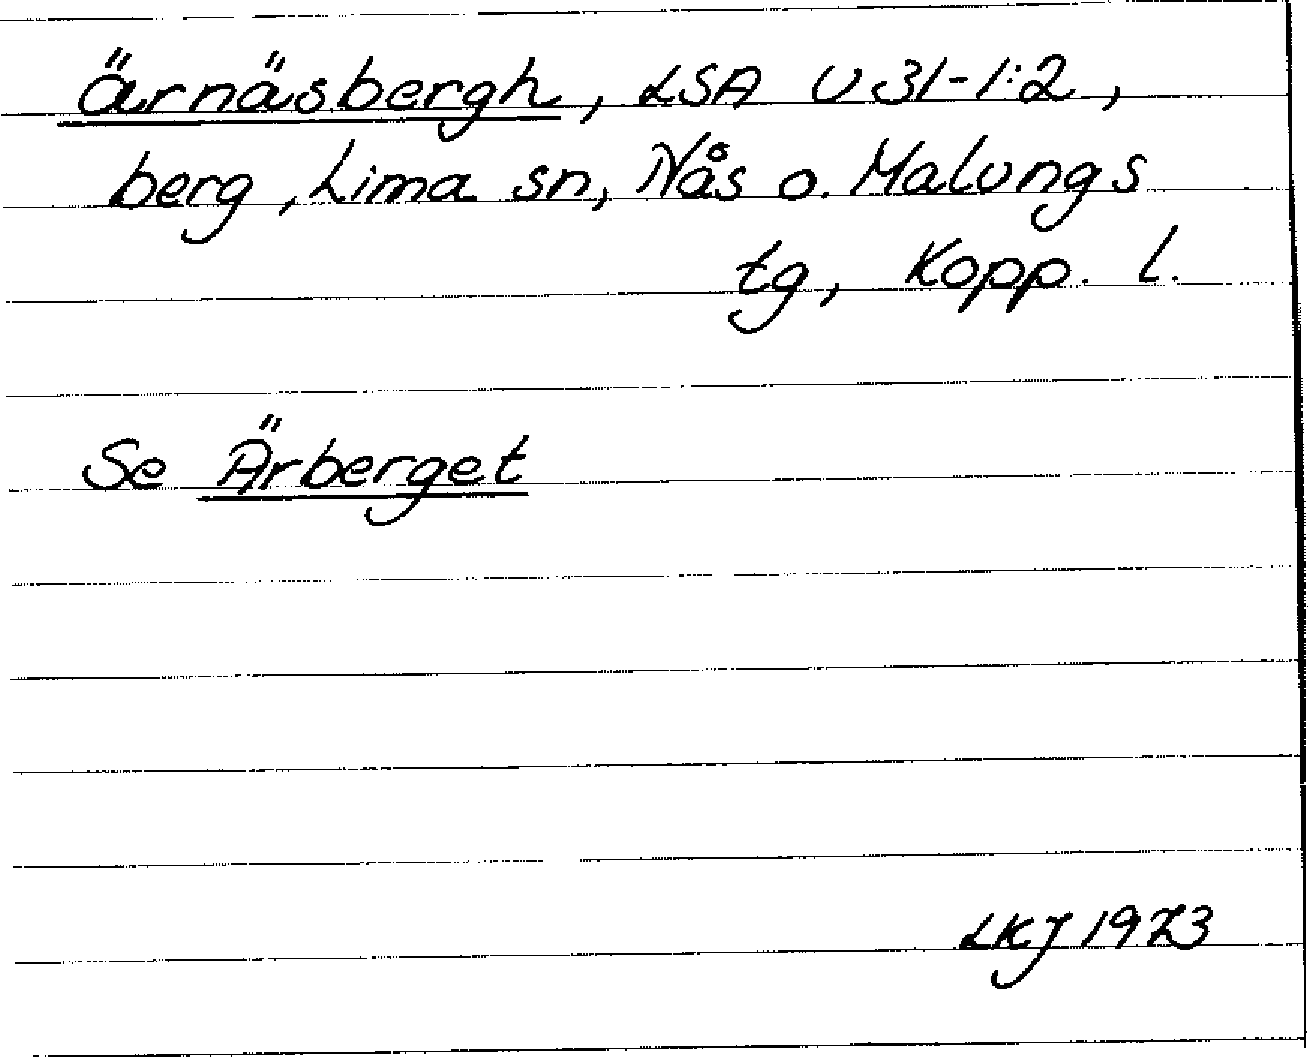 ärnäsbergh, LSA U 31-1:2,
berg, Lima sn, Nås o. Malungs
tg, Kopp. l.
Se Ärberget
LKJ 1973